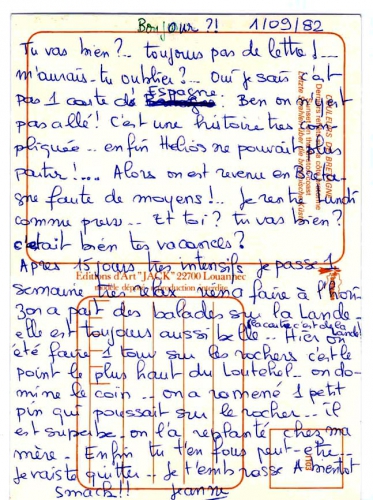 Bonjour ?!
1/09/82
Tu vas bien ?.. toujours pas de lettre !...
m'aurais-tu oublier ?.. Oui je sais c'est
pas 1 carte d'Espagne. Ben on n'y est
pas allé ! c'est une histoire très com
pliquée.. enfin Hélios ne pouvait plus
partir !.... Alors on est revenu en Breta-
gne faute de moyens !... Je rentre lundi
comme prévu.. Et toi ? tu vas bien ?
c'était bien tes vacances ?
Après 15 jours très intensifs je passe 1
Editions d'Art "JACK" 22700 Louannec
semaine très relax rien à faire à l'hori-
Modèle déposé reproduction interdite
zon a part des balades sur la Lande.
elle est toujours aussi belle.. Hier on
la carte c'est de la Lande !
été faire 1 tour sur les rochers c'est le
point le plus haut du ... on do-
mine le coin.. on a ramené 1 petit
pin qui poussait sur le rocher.. il
est superbe on l'a replanté chez ma
mère. Enfin tu t'en fous peut-être..
je vais te quitter.. Je t'embrasse A bientôt
Smack !! Jeanne
COULEURS DE BRETAGNE